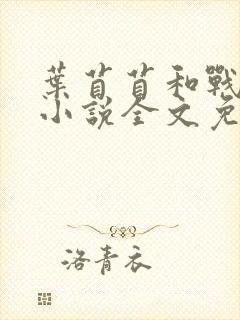 葉苜苜和戰
小說全文免
洛青衣